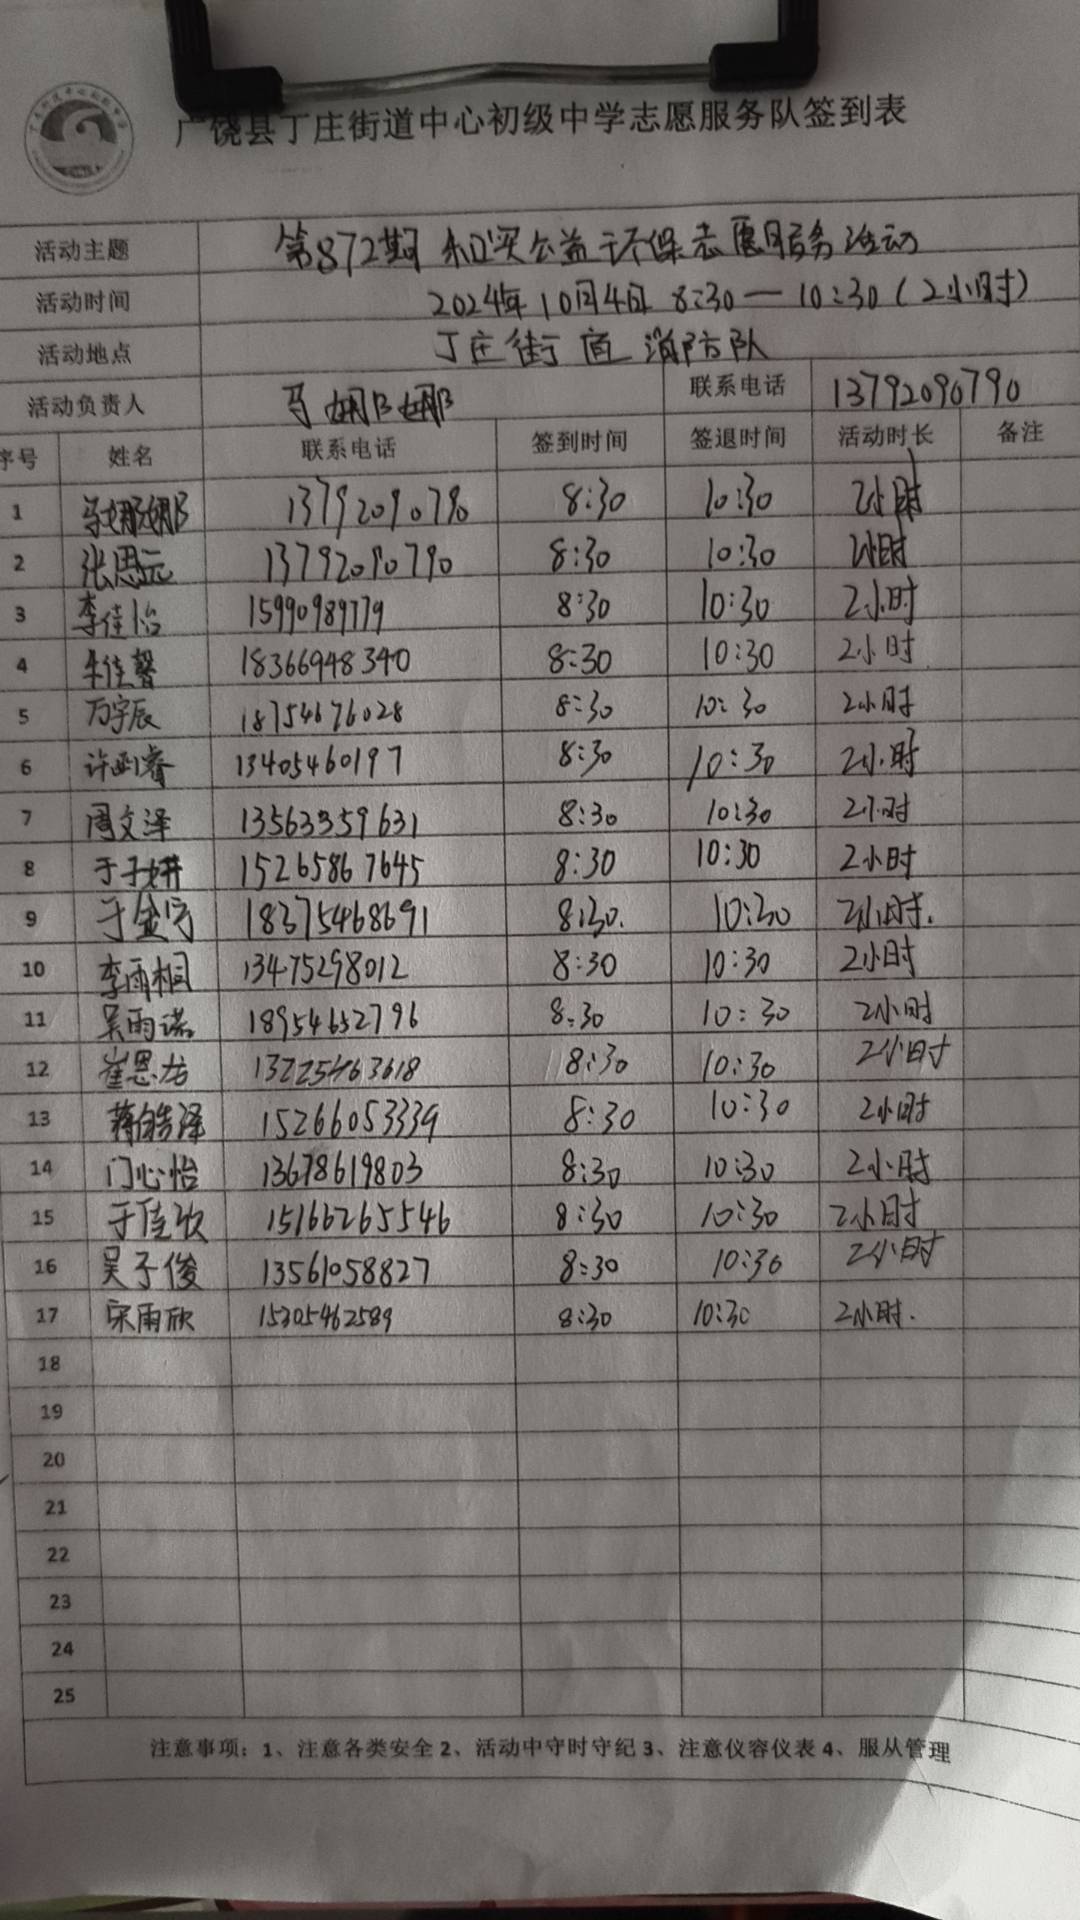 广饶县丁庄街道中心初级中学志愿服务队签到表
活动主题 第872期 和实公益环保志愿服务活动
活动时间 2024年10月4日 8:30—10:30(2小时)
活动地点 丁庄街道消防队
活动负责人 马娜娜 联系电话 13792090790
序号 姓名 联系电话 签到时间 签退时间 活动时长 备注
1 马娜娜 13792090790 8:30 10:30 2小时
2 张思远 13792090790 8:30 10:30 2小时
3 李佳怡 15990989779 8:30 10:30 2小时
4 牟佳馨 18366948340 8:30 10:30 2小时
5 万宇辰 18754676028 8:30 10:30 2小时
6 许 睿 13405460197 8:30 10:30 2小时
7 周文泽 13563359631 8:30 10:30 2小时
8 于子妍 15265867645 8:30 10:30 2小时
9 于金宁 18375468691 8:30. 10:30 2小时.
10 李雨桐 13475298012 8:30 10:30 2小时
11 吴雨诺 18954652796 8:30 10:30 2小时
12 崔恩龙 13225463618 8:30 10:30 2小时
13 蒋皓泽 15266053339 8:30 10:30 2小时
14 门心怡 13678619803 8:30 10:30 2小时
15 于佳欣 15166265546 8:30 10:30 2小时
16 吴子俊 13561058827 8:30 10:30 2小时
17 宋雨欣 15305462589 8:30 10:30 2小时.
18
19
20
21
22
23
24
25
注意事项：1、注意各类安全 2、活动中守时守纪 3、注意仪容仪表 4、服从管理